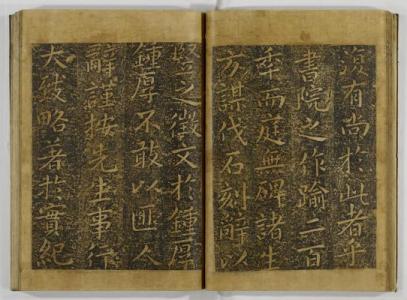 復有尚於此者乎
書院之作踰二百
秊而庭無碑諸生
方謀伐石刻辭以
竪之徵文於鍾厚
鍾厚不敢以匪人
辭謹按先生事行
大致略著於實紀